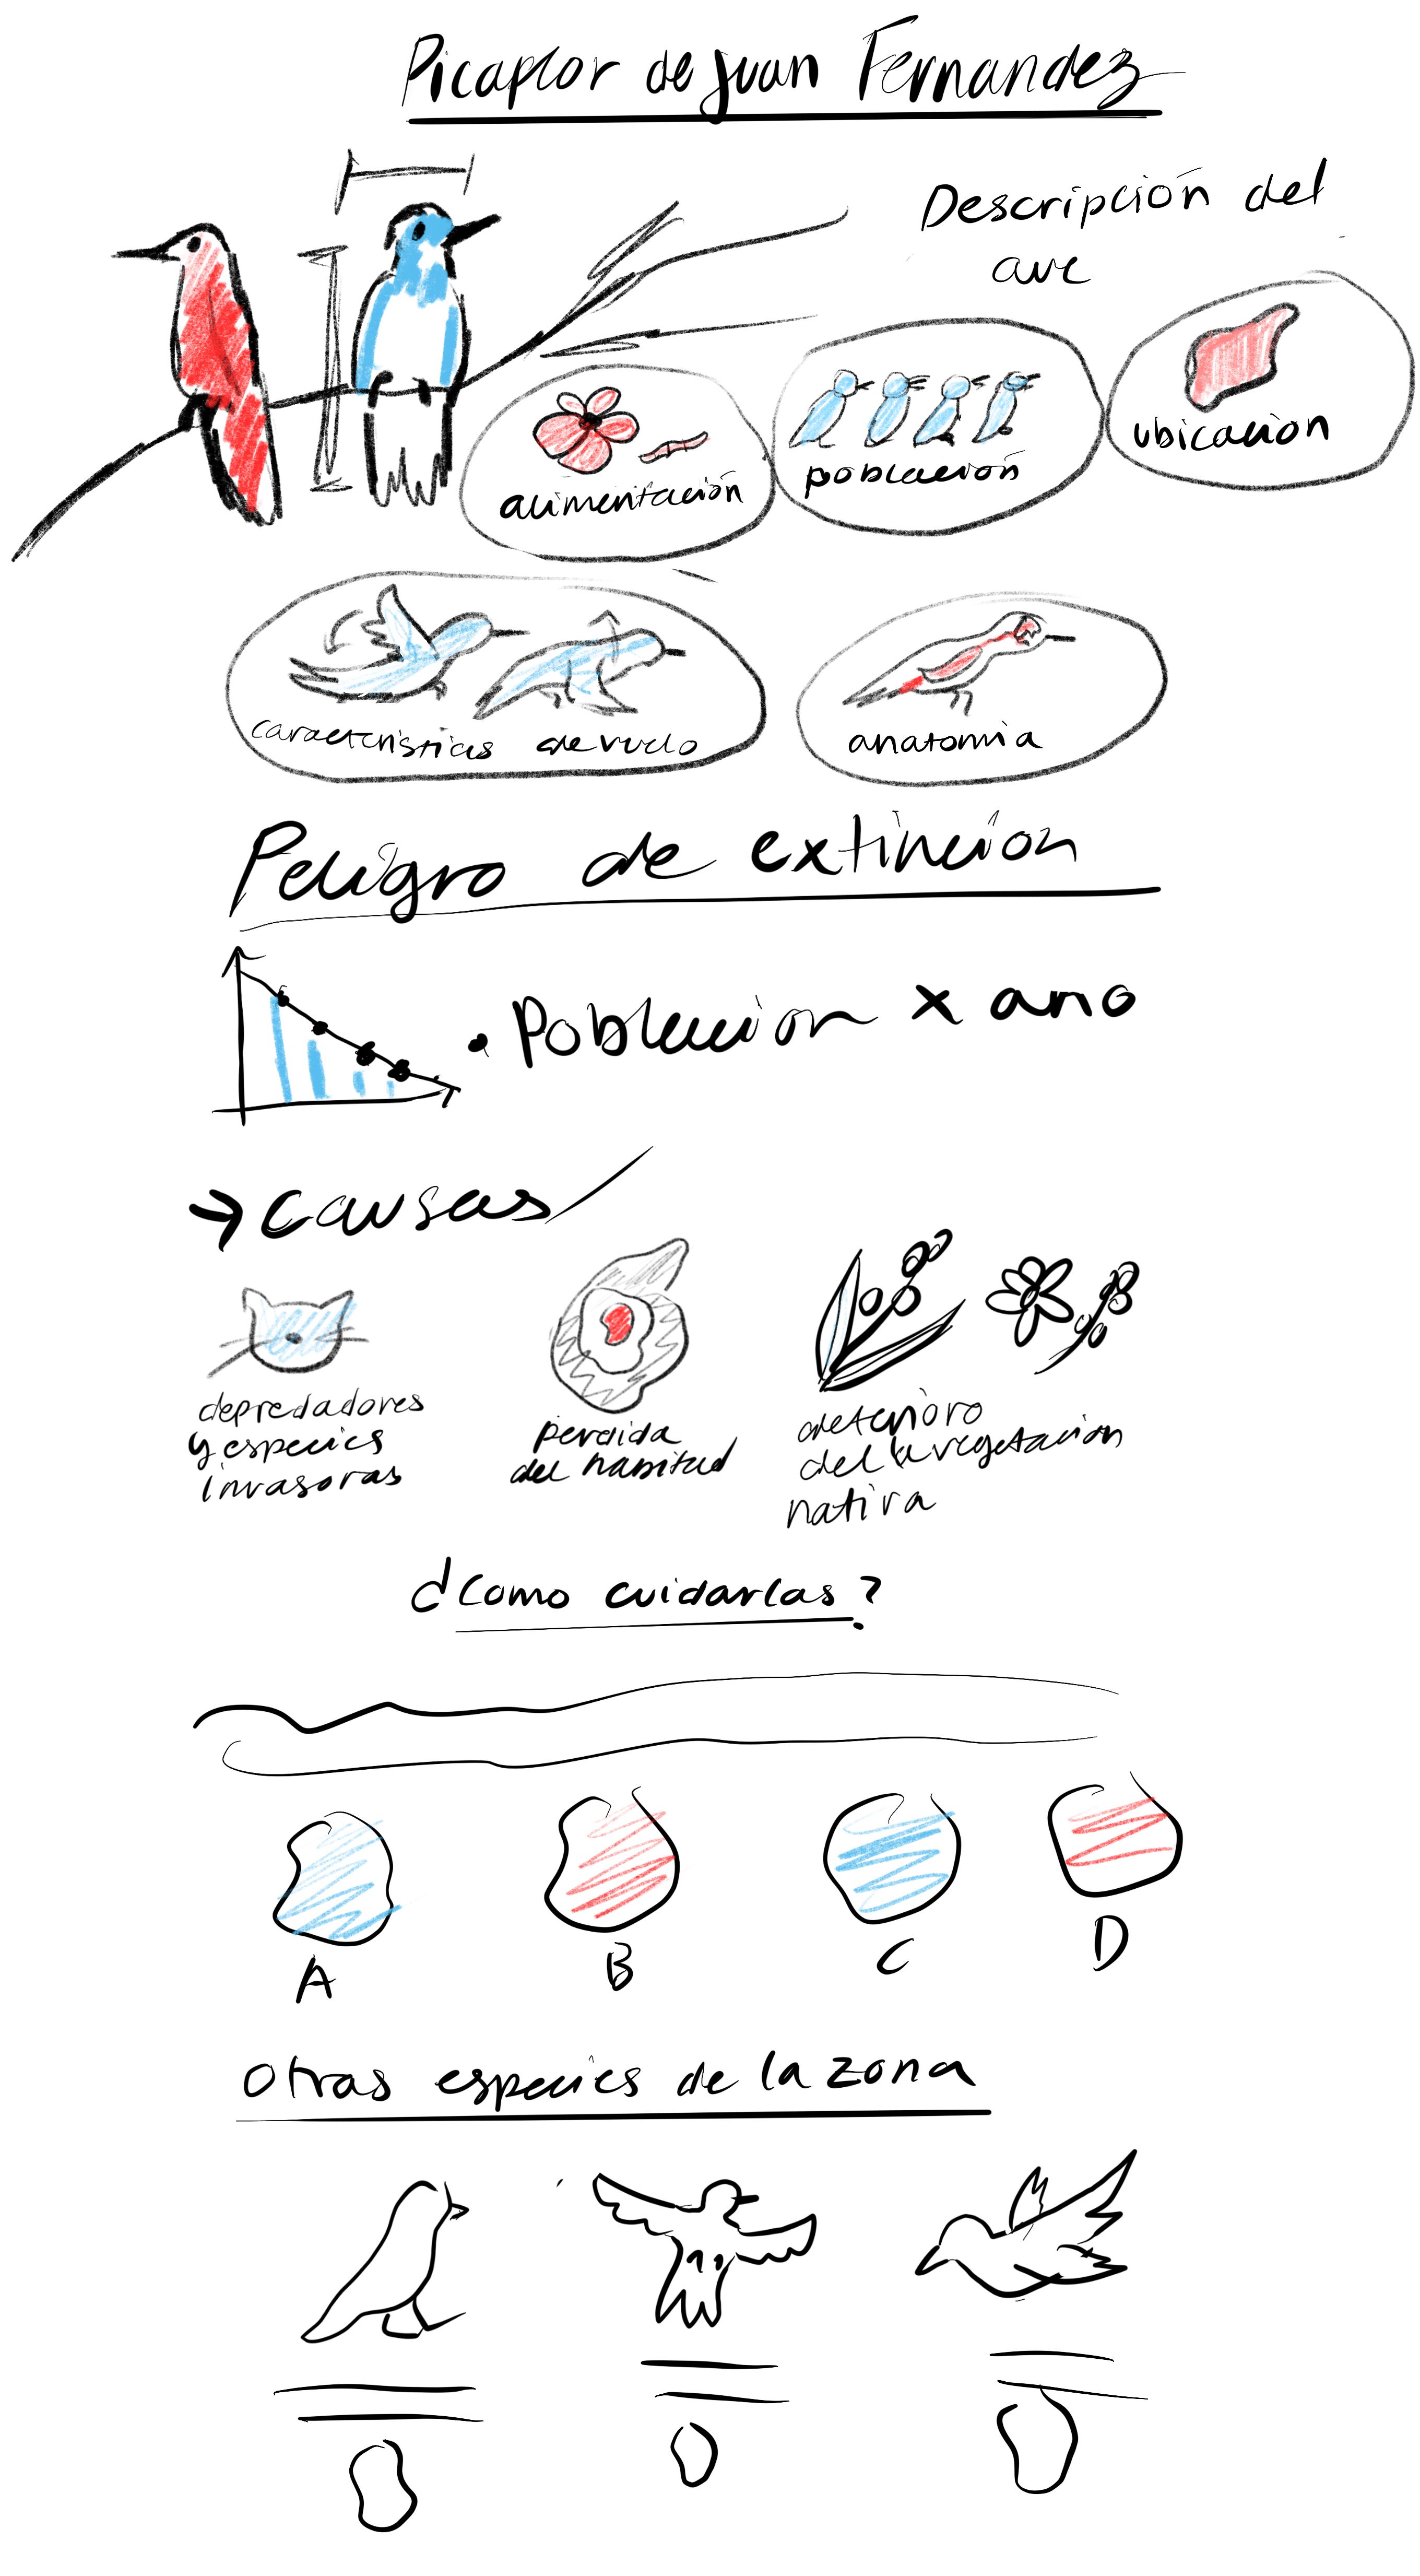 Picaflor de juan Fernandez
Descripción del
ave
alimentación
población
ubicacion
caracteristicas de vuelo
anatomia
Peligro de extincion
• Poblacion x ano
→ causas
depredadores
y especies
invasoras
perdida
del habitad
deterioro
del la vegetacion
nativa
¿Como cuidarlas?
A
B
C
D
Otras especies de la zona